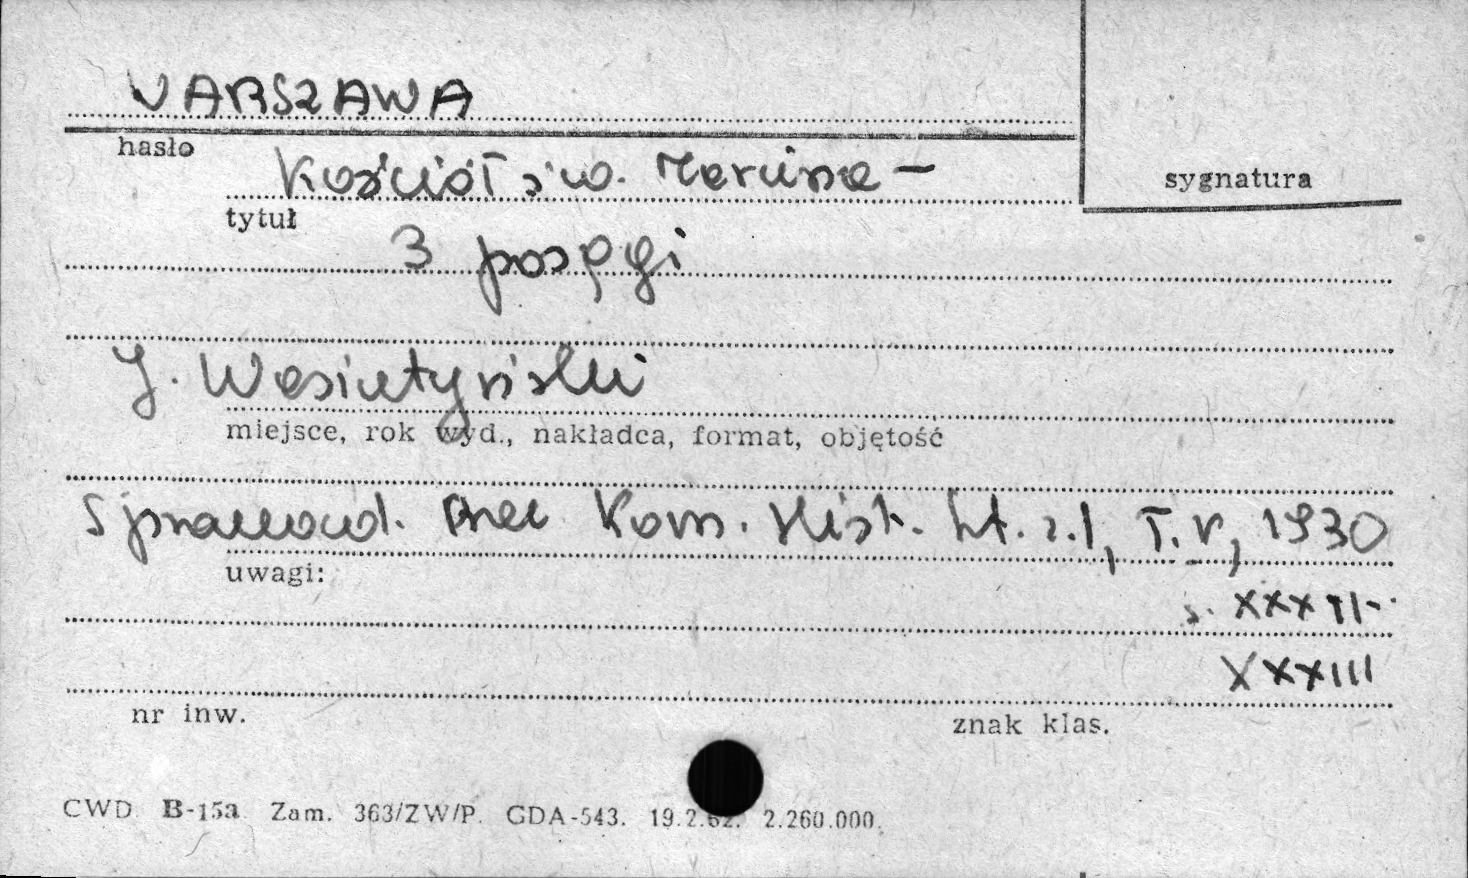 WARSZAWA
hasło
Kościół św. Marcina –
sygnatura
tytuł
3 posągi
J. Wasiutyński
miejsce, rok wyd., nakładca, format, objętość
Sprawozd. Prac Kom. Hist. Szt. z. 1, T. V, 1930
uwagi:
s. XXXII-
XXXIII
nr inw.
znak klas.
CWD B-15a Zam. 363/ZW/P. GDA-543. 19.2.62. 2.260.000.